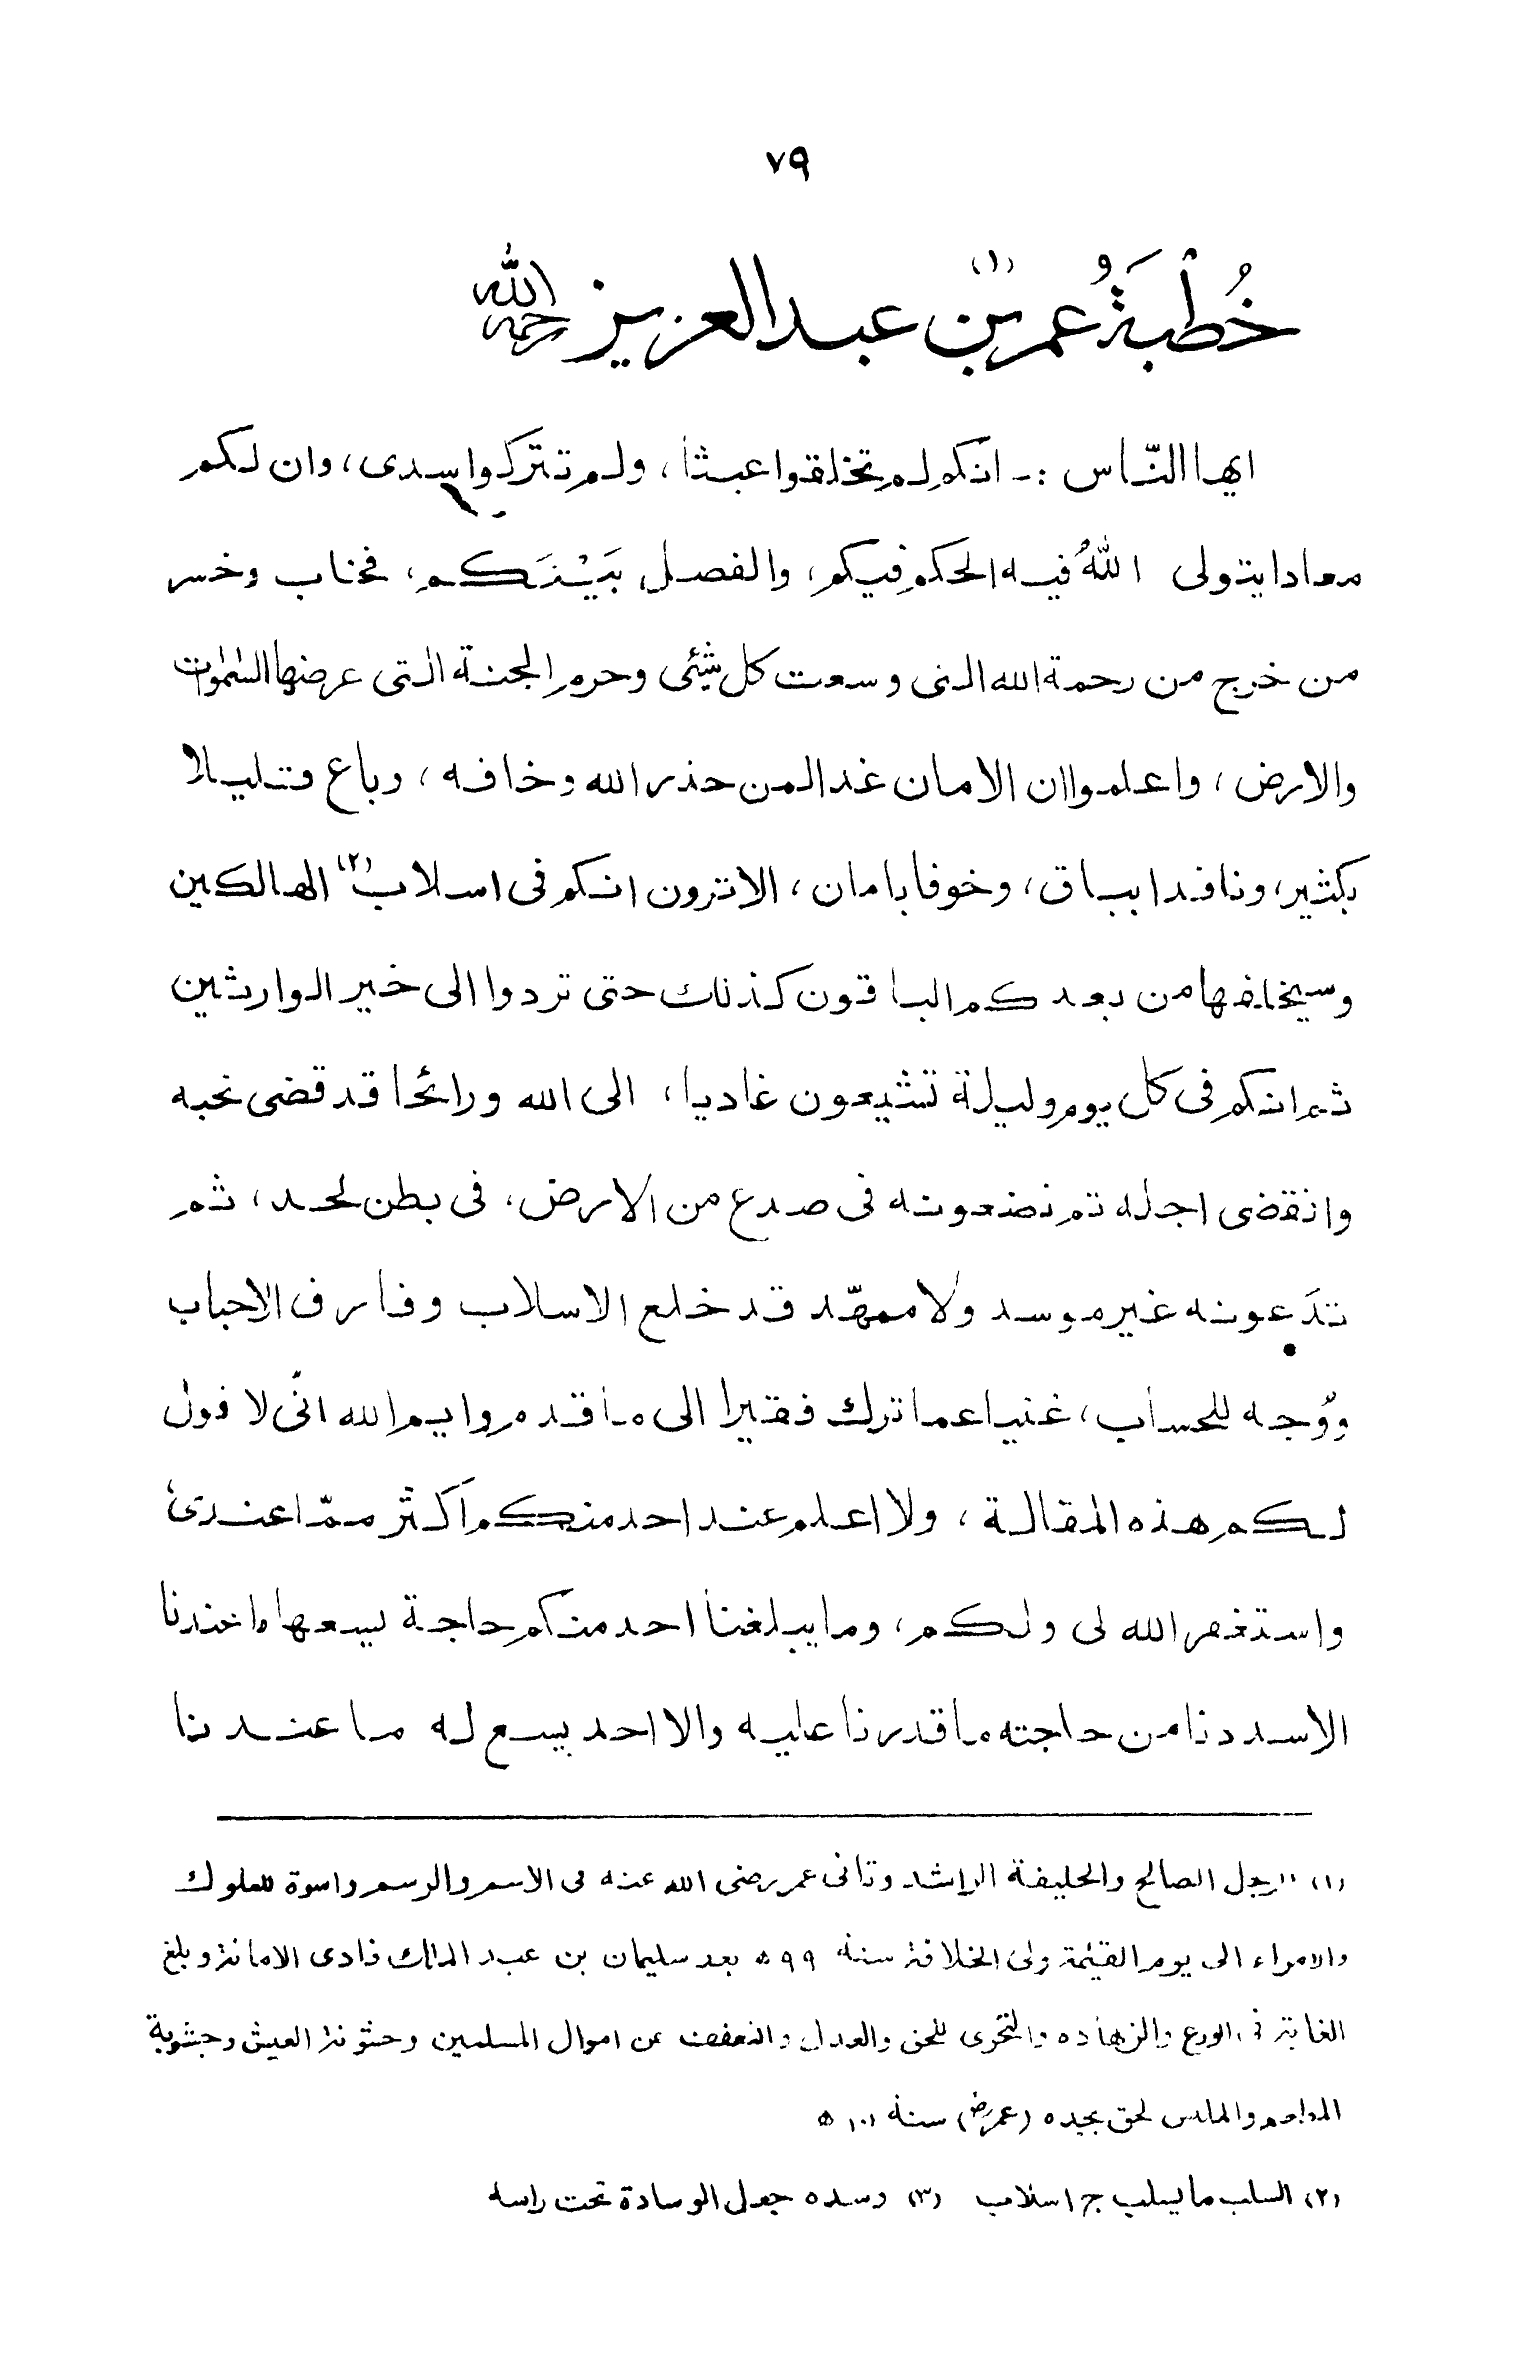 ٧٩
خُطْبَةُ عمر بن (١) عبد العزيز رحمه الله
ايها النّاس :- انكم لم تخلقوا عبثا ، ولم تتركوا سدى ، وان لكم
معادا يتولى اللهُ فيه الحكم فيكم ، والفصل بَيْنَكم ، فخاب وخسر
من خرج من رحمة الله التى وسعت كل شيئى وحرم الجنة التى عرضها السمٰوات
والارض ، واعلموا ان الامان غدا لمن حذر الله وخافه ، وباع قليلا
بكثير ، ونافدا بباق ، وخوفا بامان ، الا ترون انكم فى اسلاب (٢) الهالكين
وسيخلفها من بعدكم الباقون كذلك حتى تردوا الى خير الوارثين
ثم انكم فى كل يوم وليلة تشيعون غاديا ، الى الله ورائحا قد قضى نحبه
وانقضى اجله ثم تضعونه فى صدع من الارض ، فى بطن لحد ، ثم
تدَعونه غير موسد ولا ممهّد قد خلع الاسلاب وفارق الاحباب
ووُجه للحساب ، غنيا عما ترك فقيرا الى ما قدم وايم الله انّى لا قول
لكم هذه المقالة ، ولا اعلم عند احد منكم اكثر ممّا عندى
واستغفر الله لى ولكم ، وما يبلغنا احد منكم حاجة يسعها ما عندنا
الا سددنا من حاجته ما قدرنا عليه والا احد يسع له ما عندنا
(١) الرجل الصالح والخليفة الراشد وثانى عمر رضى الله عنه فى الاسم والرسم واسوة للملوك
والامراء الى يوم القيٰمة ولى الخلافة سنة ٩٩ ھ بعد سليمان بن عبد الملك فادى الامانة وبلغ
الغاية فى الورع والزهاده والتحرى للحق والعدل والتعفف عن اموال المسلمين وخشونة العيش وجشوبة
المطعم والملبس لحق بجده (عمر رض) سنة ١٠١ ھ
(٢) السلب ما يسلب ج اسلاب (٣) وسده جعل الوسادة تحت راسه